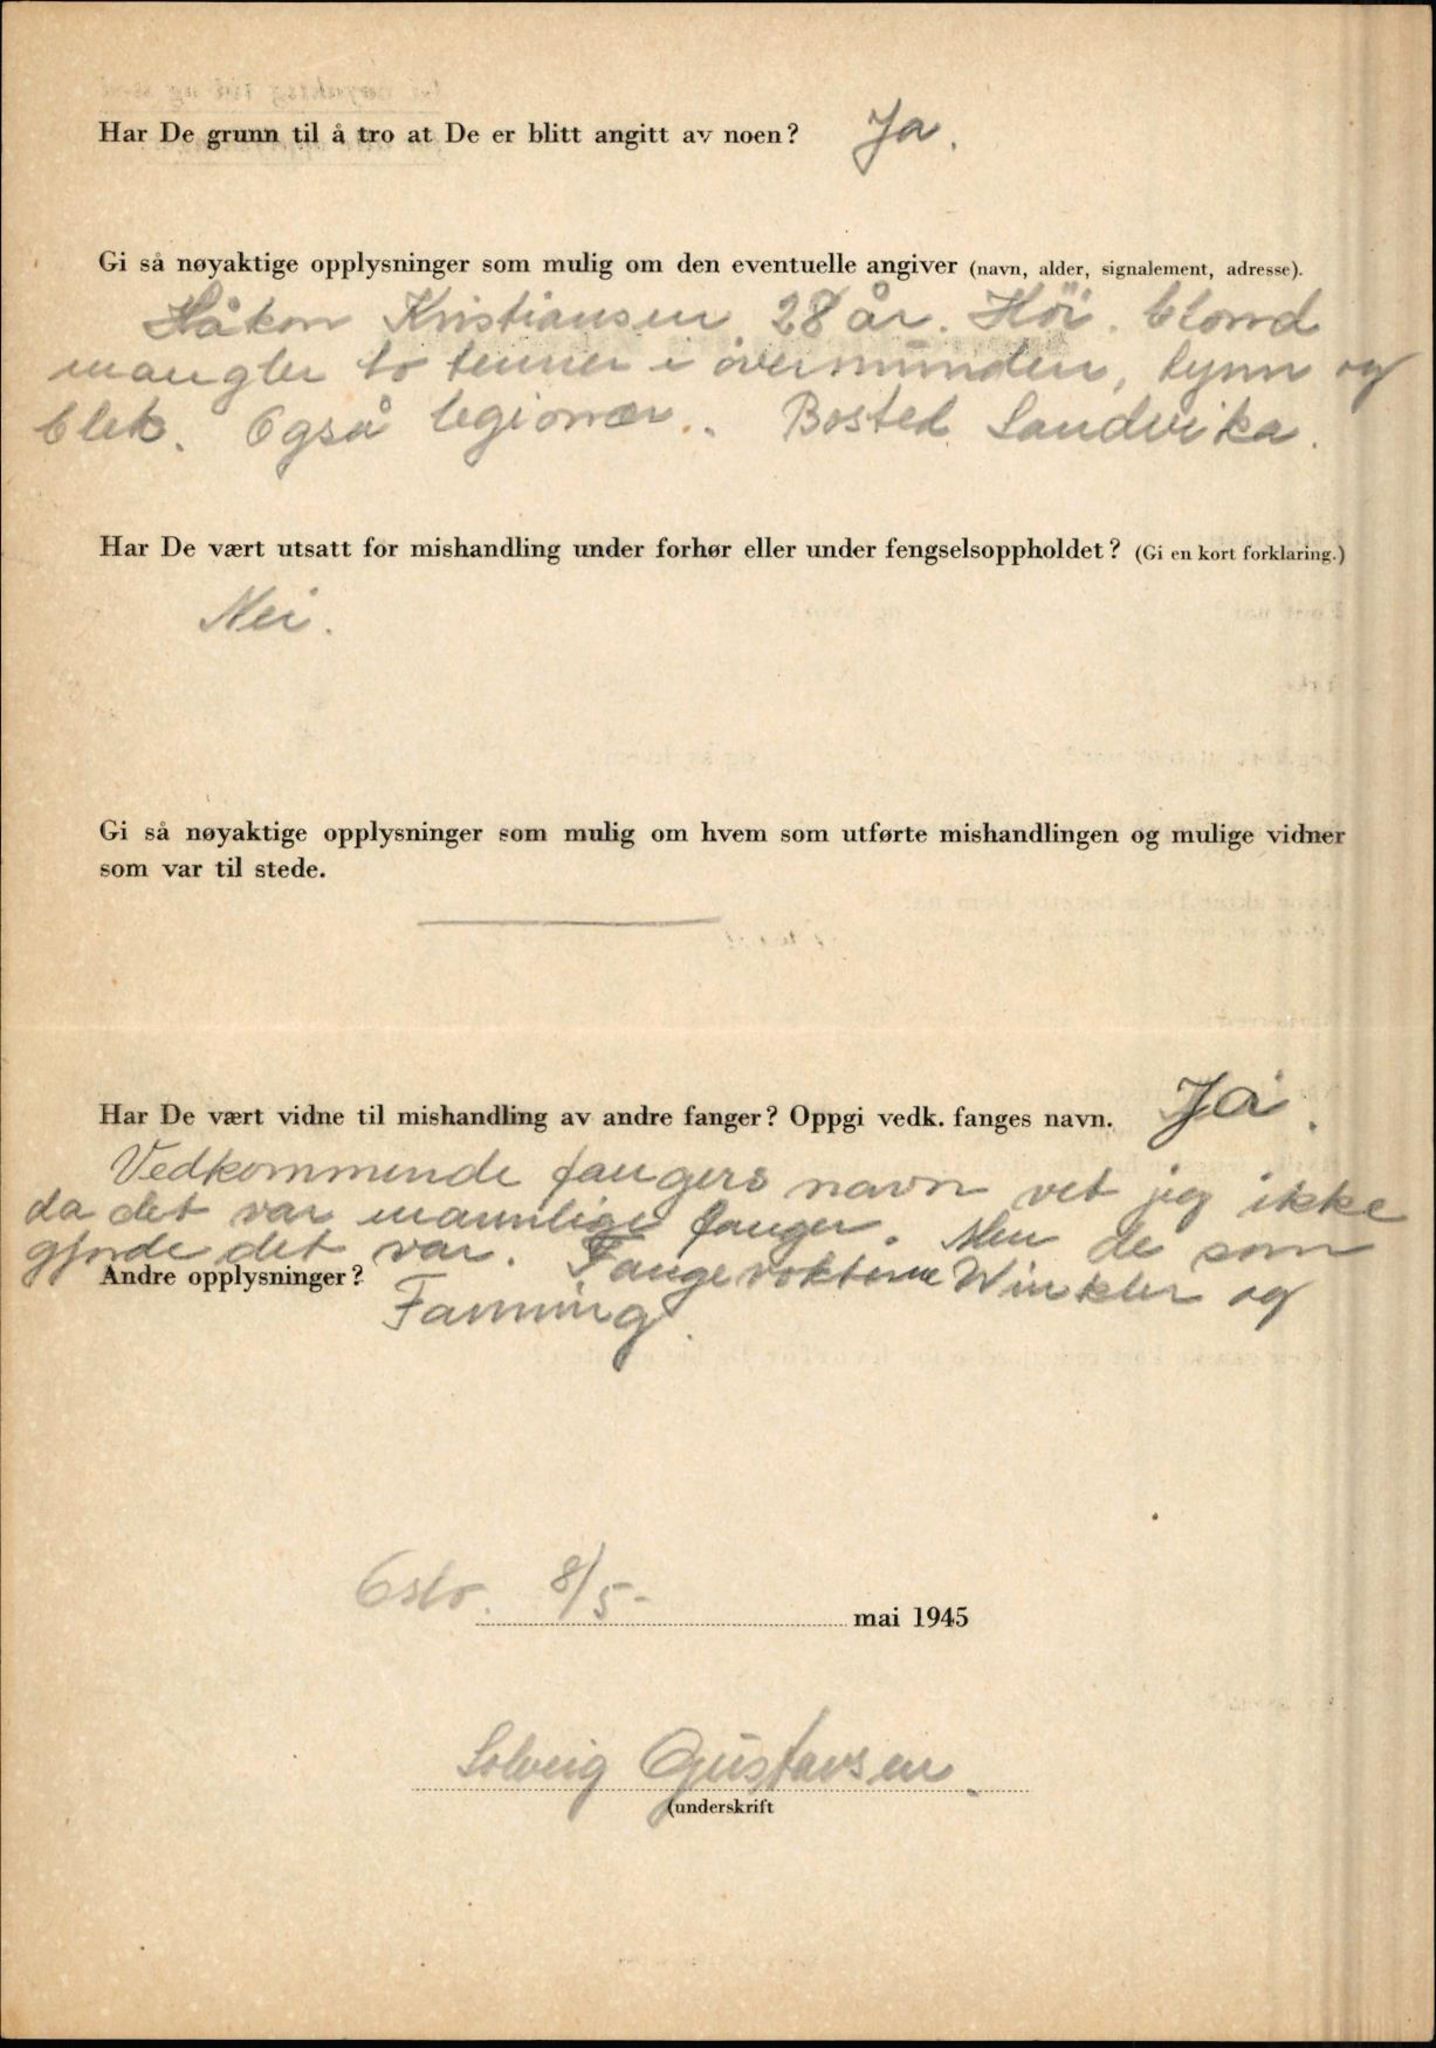 Har De grunn til å tro at De er blitt angitt av noen? Ja.
Gi så nøyaktige opplysninger som mulig om den eventuelle angiver (navn, alder, signalement, adresse).
Håkon Kristiansen 28 år. Höi. blond
mangler to tenner i overmunnden, tynn og
blek. Også legionær.. Bosted Sandvika.
Har De vært utsatt for mishandling under forhør eller under fengselsoppholdet? (Gi en kort forklaring.)
Nei.
Gi så nøyaktige opplysninger som mulig om hvem som utførte mishandlingen og mulige vidner
som var til stede.
Har De vært vidne til mishandling av andre fanger? Oppgi vedk. fanges navn. Ja.
Vedkommende fangers navn vet jeg ikke
da det var mannlige fanger. Men de som
gjorde det var. Fangevokterne Winkler og
Andre opplysninger?
Fanning.
Oslo. 8/5- mai 1945
Solveig Gustavsen.
(underskrift